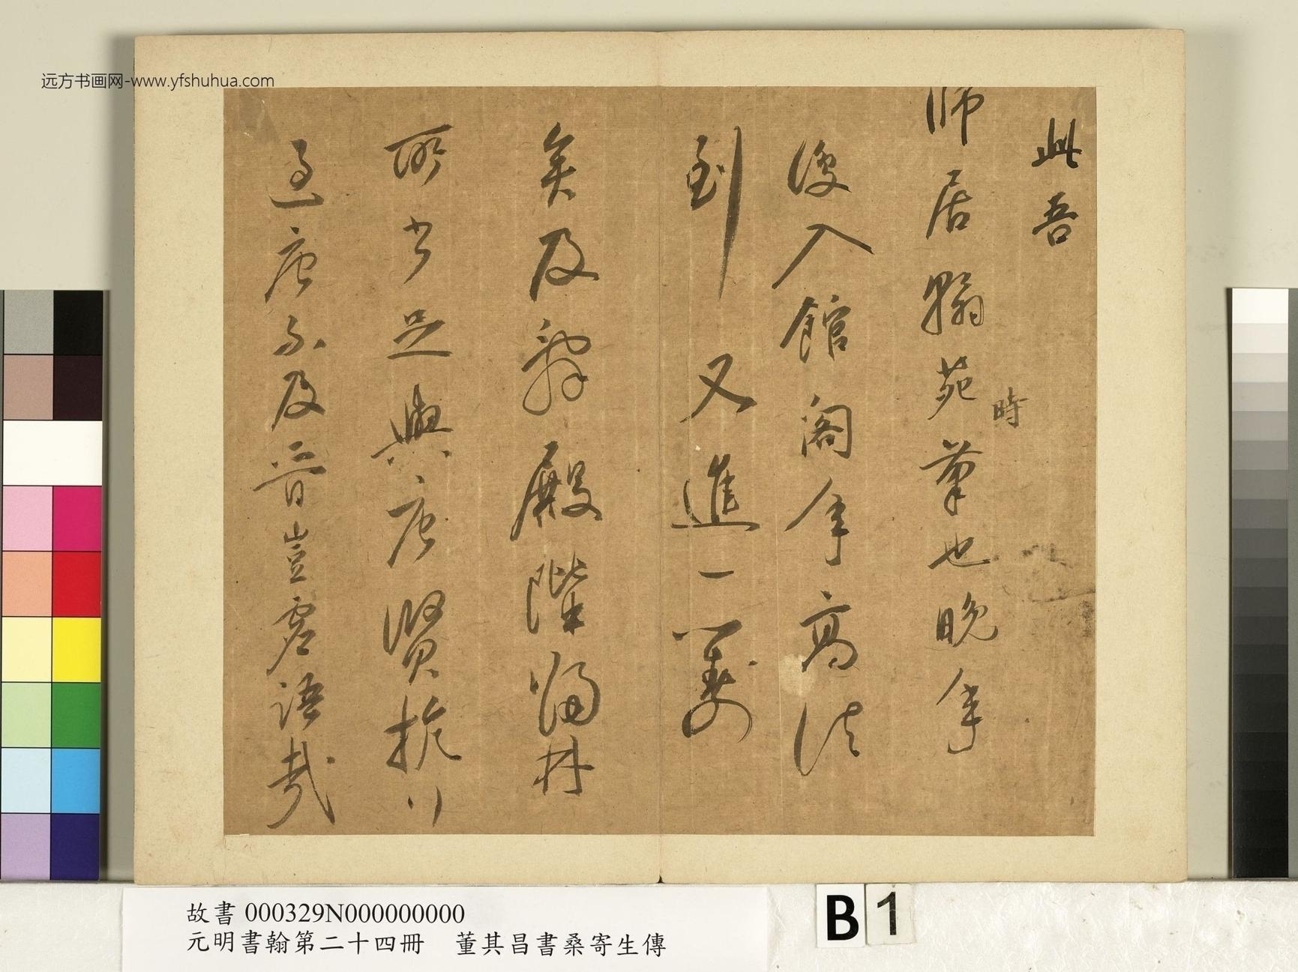 远方书画网-www.yfshuhua.com
此吾
师居翰苑時筆也晚年
復入館阁年高法
到又進一籌
矣及辭殿階歸林
所书足與唐賢抗行
過唐不及晉豈虛語哉
故書 000329N000000000
元明書翰第二十四冊 董其昌書桑寄生傳
B 1